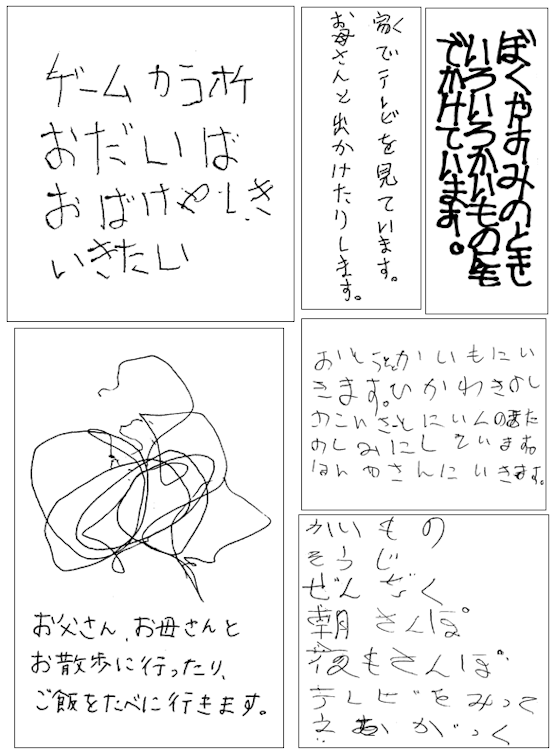 ゲーム カラオケ
おだいば
おばけやしき
いきたい
家でテレビを見ています。
お母さんと出かけたりします。
ぼくやすみのとき
いろいろかいもの
でかけています。
お父さん、お母さんと
お散歩に行ったり、
ご飯をたべに行きます。
かいもにい
きます。ひかわきよし
かこいいさとにいんの
たのしみにしています
ほんやさんにいきます。
かいもの
そうじ
せんだく
朝さんぽ
夜もさんぽ
テレビをみって